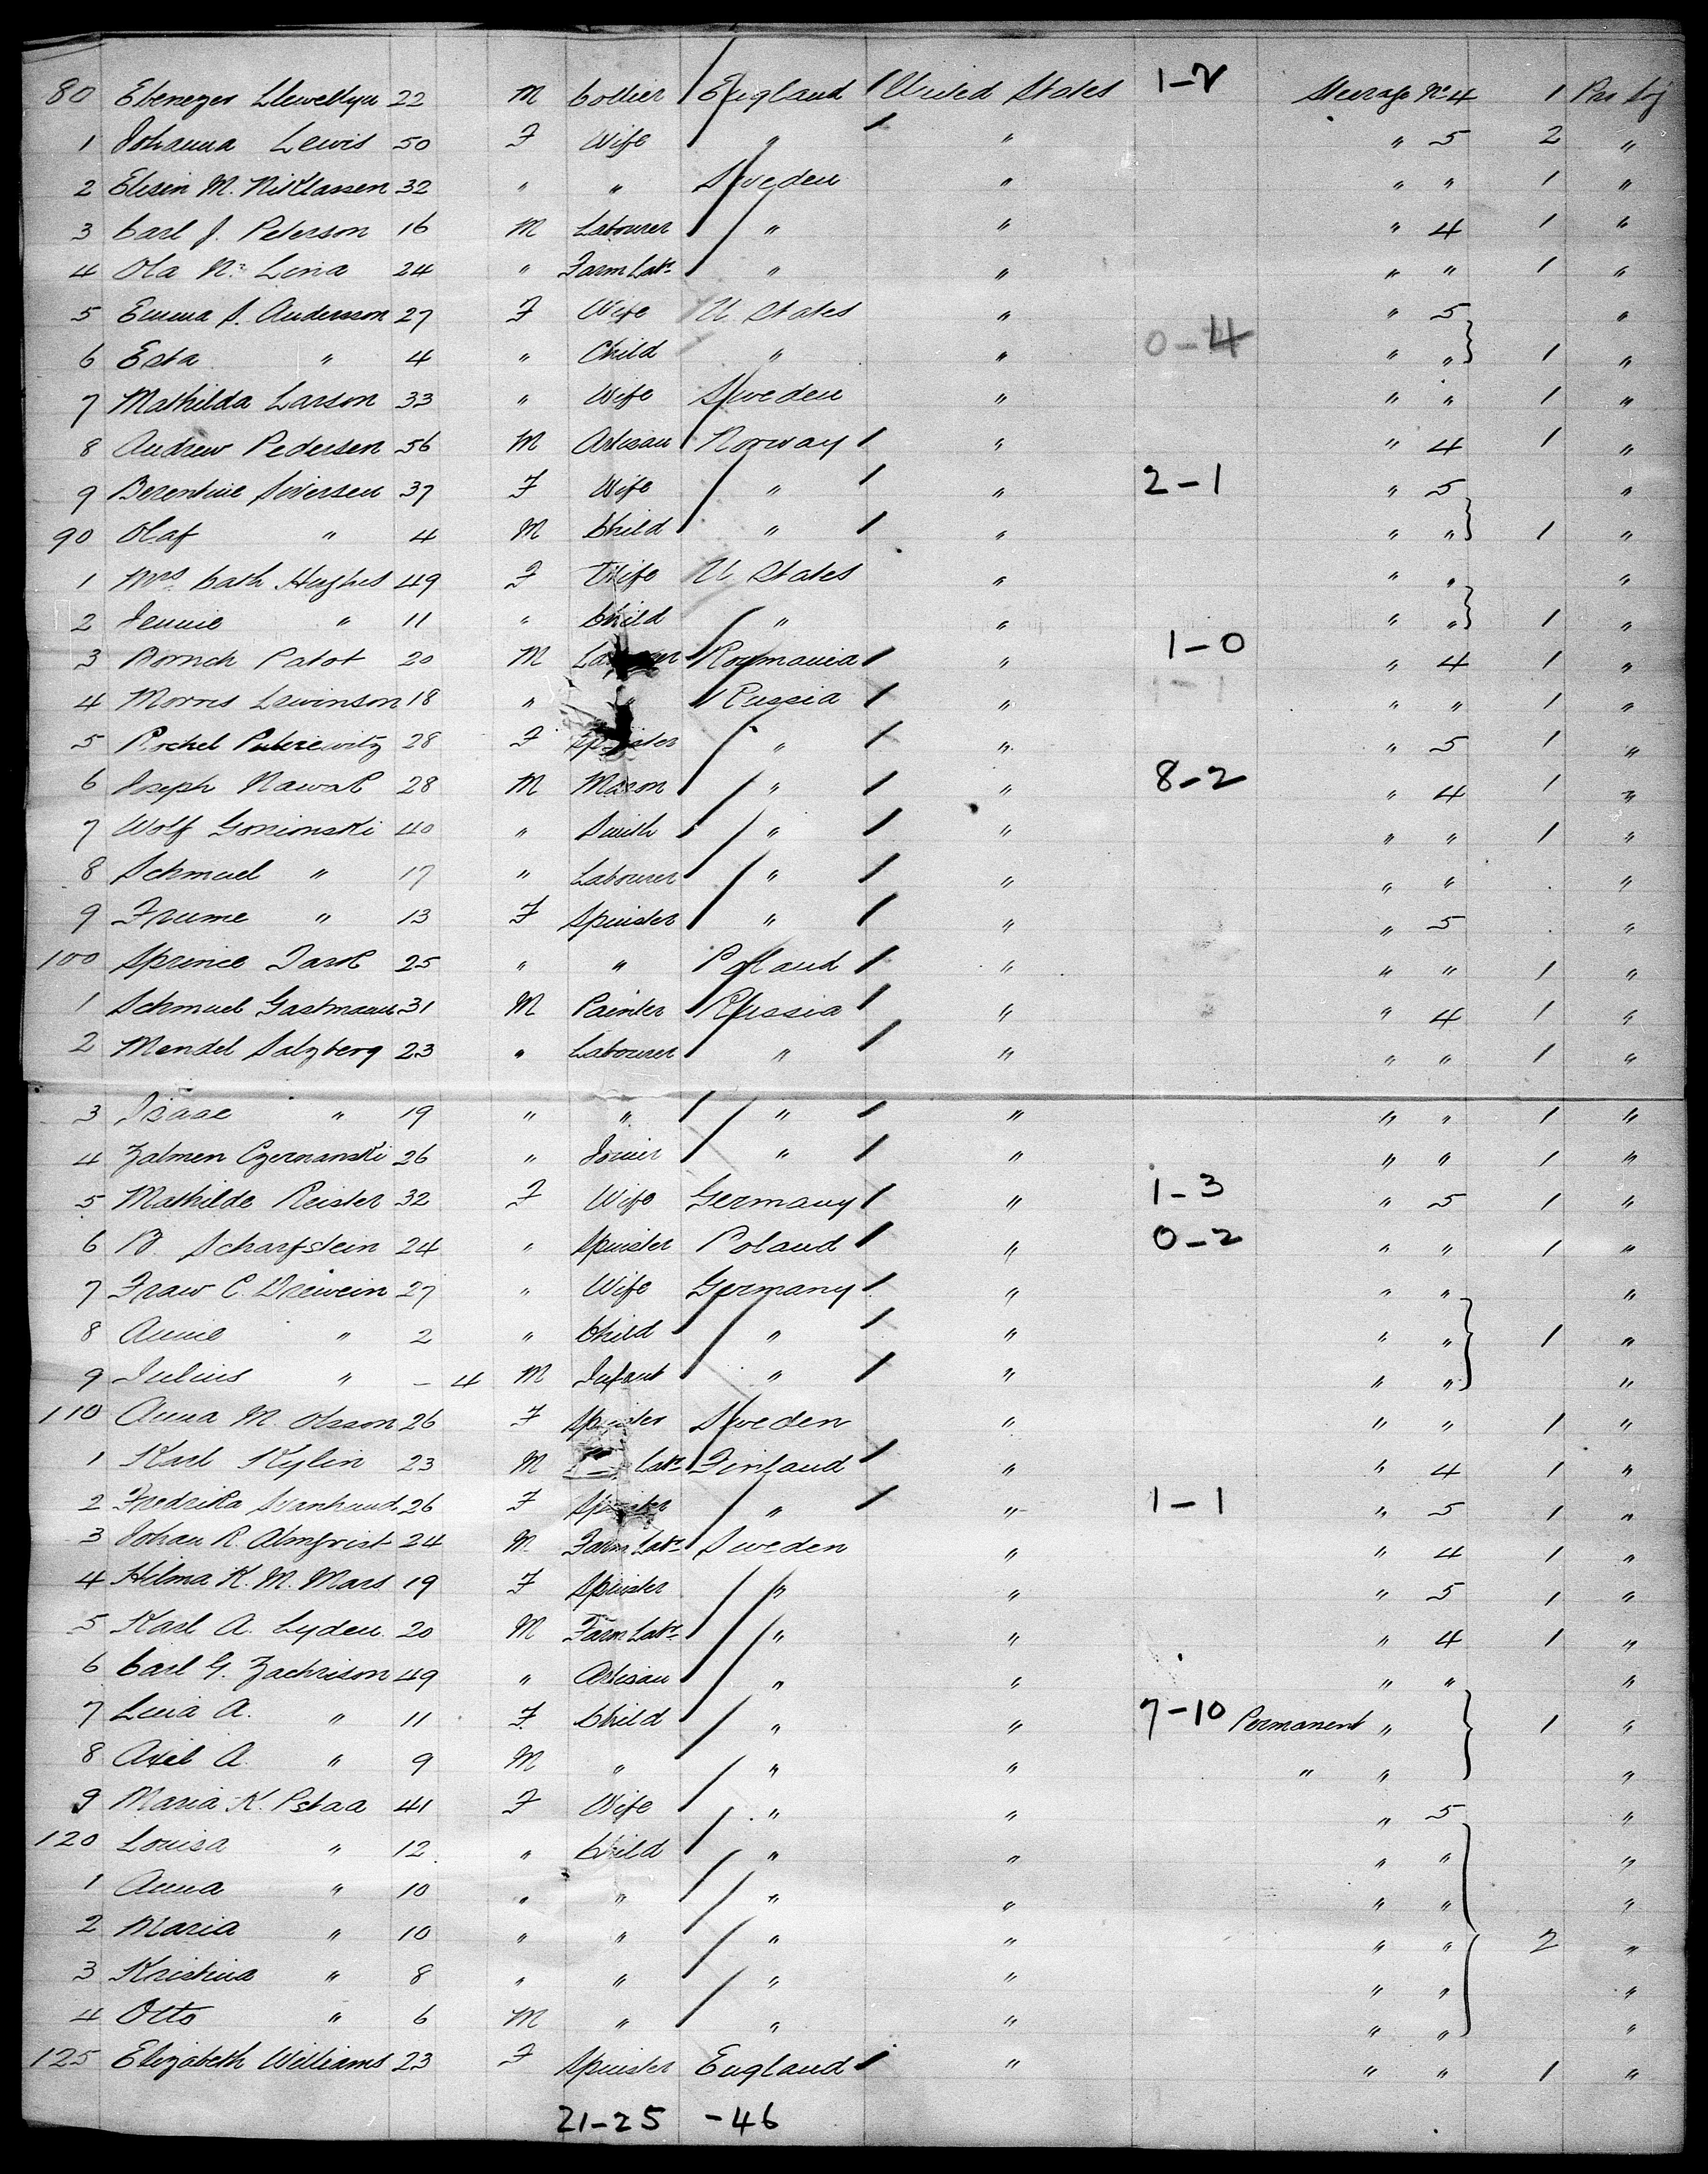 80 Ebenezer Llewellyn 22 M Collier England United States 1-2 Steerage No 4 1 Pro Soj
1 Johanna Lewis 50 F Wife " " " 5 2 "
2 Elisin M. Niklassen 32 " " Sweden " " " 1 "
3 Carl J. Peterson 16 M Labourer " " " 4 1 "
4 Ola Nr Lina 24 " Farm Labr " " " " 1 "
5 Emma S. Andersson 27 F Wife U States " " 5 "
6 Esta " 4 " Child " " 0-4 " " 1 "
7 Mathilda Larson 33 " Wife Sweden " " " 1 "
8 Andrew Pedersen 56 M Artisan Norway " " 4 1 "
9 Berentine Siversen 37 F Wife " " 2-1 " 5 "
90 Olaf " 4 M Child " " " " 1 "
1 Mrs Cath Hughes 49 F Wife U States " " " "
2 Jennie " 11 " Child " " " " 1 "
3 Patot 20 M Roumania " 1-0 " 4 1 "
4 Morris Lewinson 18 " " Russia " 1-1 " " 1 "
5 Rochel 28 F Spinster " " " 5 1 "
6 Joseph Nawak 28 M Mason " " 8-2 " 4 1 "
7 Wolf Gonionski 40 " Smith " " " " 1 "
8 Schmuel " 17 " Labourer " " " " "
9 Frume " 13 F Spinster " " " 5 "
100 Sprince Tarok 25 " " Poland " " " 1 "
1 Schmuel Gastmann 31 M Painter Russia " " 4 1 "
2 Mendel Salzberg 23 " Labourer " " " " 1 "
3 Isaac " 19 " " " " " " 1 "
4 Zalmen Czernanski 26 " Joiner " " " " 1 "
5 Mathilde Reister 32 F Wife Germany " 1-3 " 5 1 "
6 B. Scharfstein 24 " Spinster Poland " 0-2 " " 1 "
7 Fraw C. Drewein 27 " Wife Germany " " " "
8 Annie " 2 " Child " " " " 1 "
9 Julius " - 4 M Infant " " " " "
110 Anna M. Olsson 26 F Spinster Sweden " " " 1 "
1 Karl Kylin 23 M Labr Finland " " 4 1 "
2 Fredrika Svanhund 26 F Spinster " " 1-1 " 5 1 "
3 Johan R. Almqvist 24 M Farm Labr Sweden " " 4 1 "
4 Hilma K. M. Mars 19 F Spinster " " " 5 1 "
5 Karl A. Lyden 20 M Farm Labr " " " 4 1 "
6 Carl G. Zachrison 49 " Artisan " " " " "
7 Lina A. " 11 F Child " " 7-10 Permanent " 1 "
8 Axel A. " 9 M " " " " " "
9 Maria K. Pstaa 41 F Wife " " " 5 "
120 Louisa " 12 " Child " " " " "
1 Anna " 10 " " " " " " "
2 Maria " 10 " " " " " " 2 "
3 Kristina " 8 " " " " " " "
4 Otto " 6 M " " " " " "
125 Elizabeth Williams 23 F Spinster England " " " 1 "
21-25 -46